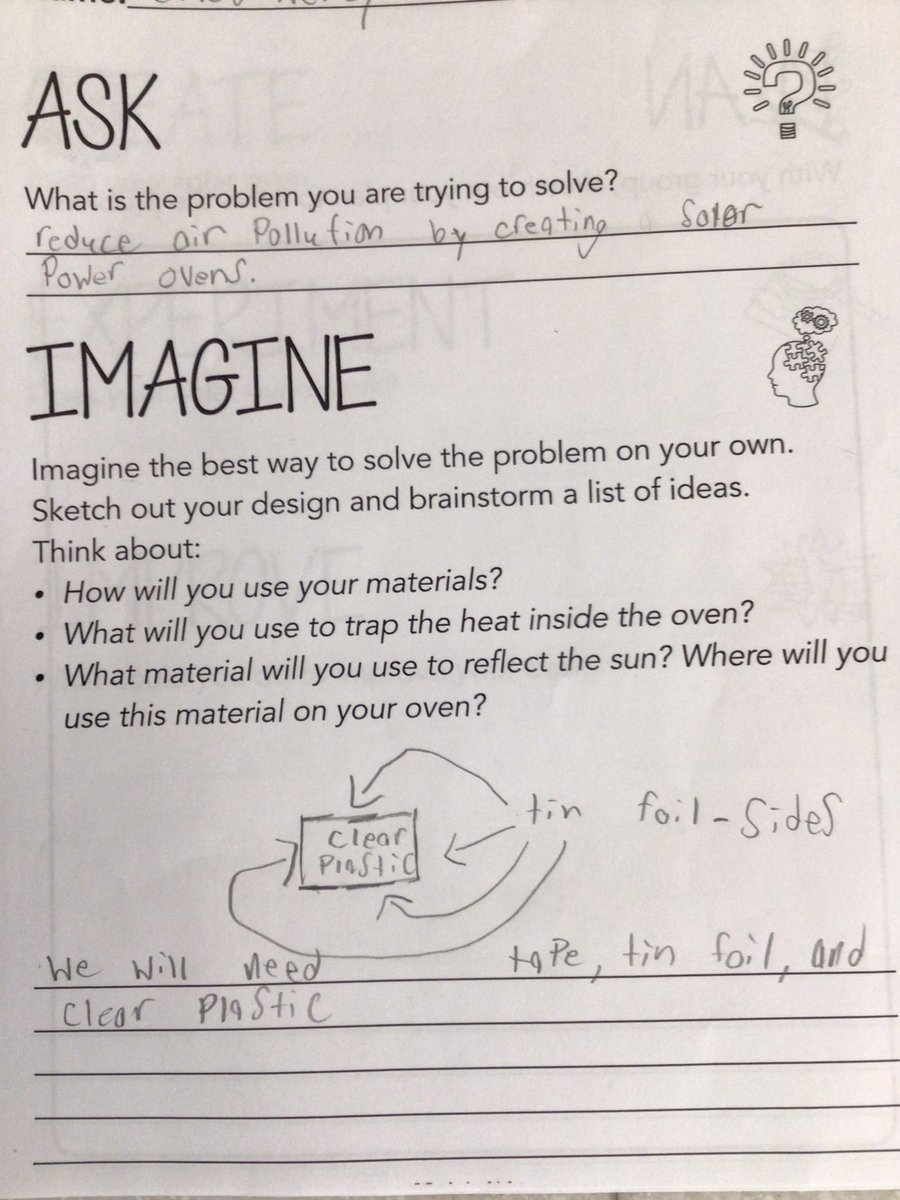 ASK
What is the problem you are trying to solve?
reduce air Pollution by creating Solar
Power ovens.
IMAGINE
Imagine the best way to solve the problem on your own.
Sketch out your design and brainstorm a list of ideas.
Think about:
• How will you use your materials?
• What will you use to trap the heat inside the oven?
• What material will you use to reflect the sun? Where will you
use this material on your oven?
tin foil - Sides
Clear
Plastic
We will need tape, tin foil, and
Clear Plastic